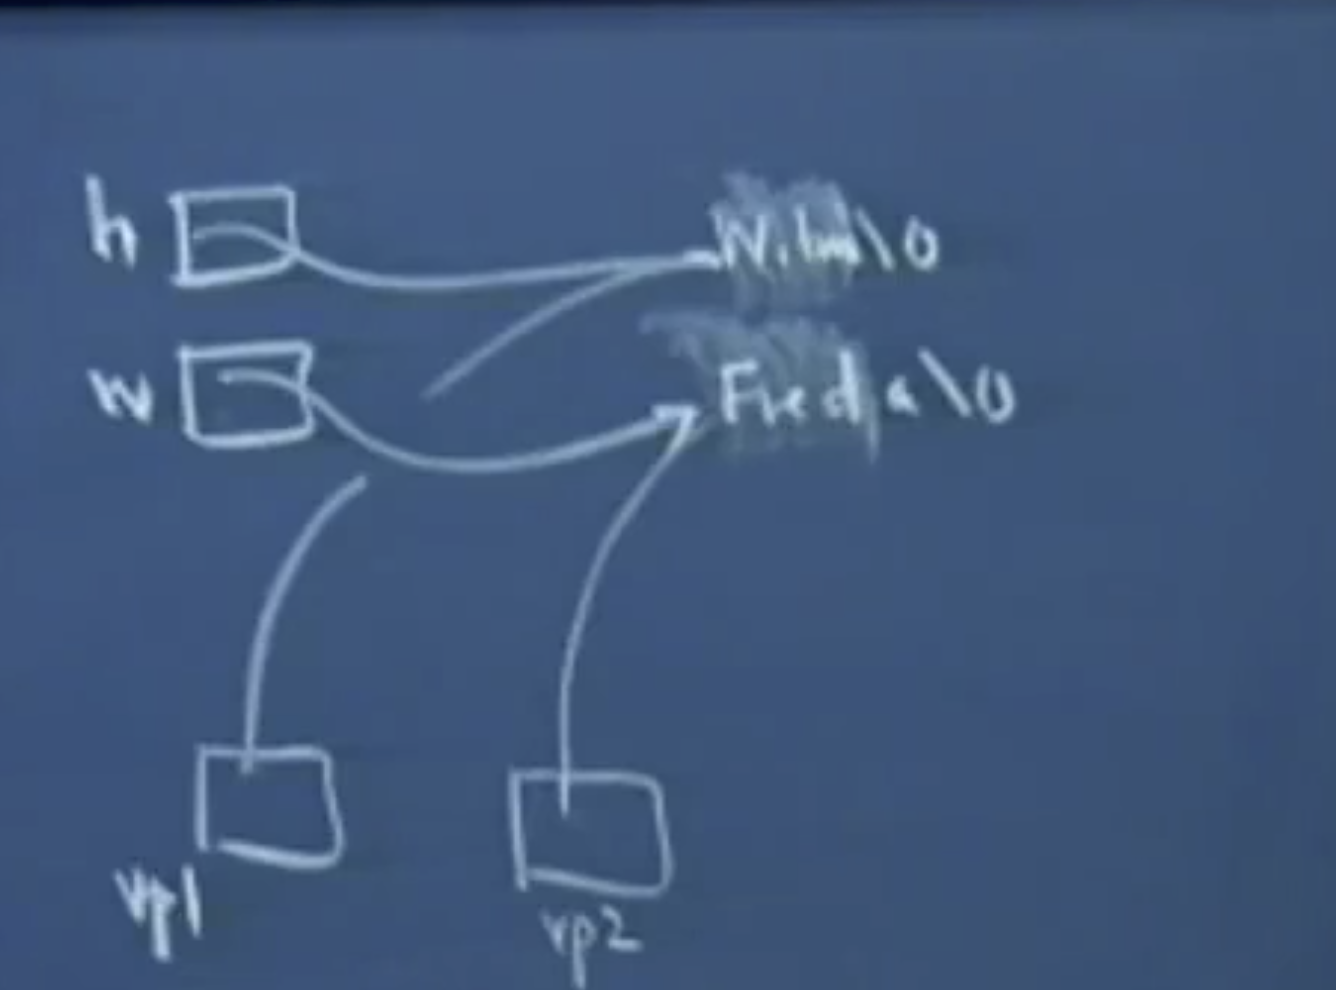 h
Wilm\0
w
Fred a\0
vp1
vp2